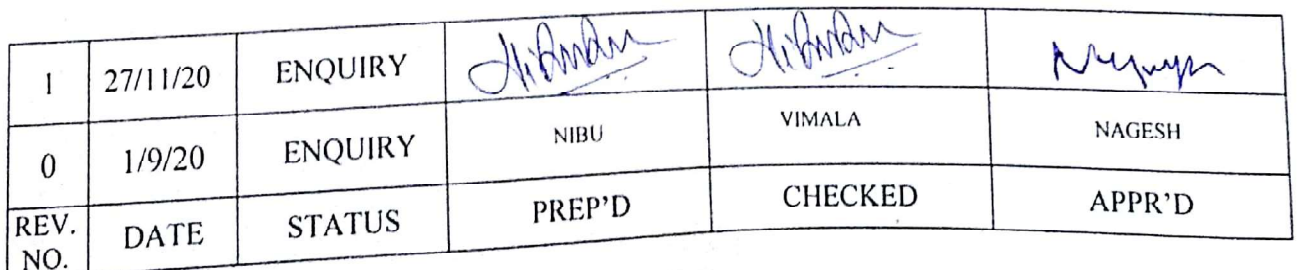 1 27/11/20 ENQUIRY
0 1/9/20 ENQUIRY NIBU VIMALA NAGESH
REV. NO. DATE STATUS PREP'D CHECKED APPR'D